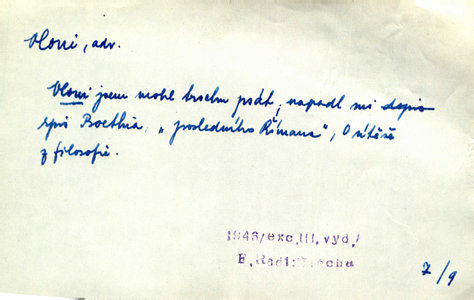 Vloni, adv.
Vloni jsem mohl trochu psát; napadl mi dopis
spis Boethia, „posledního Římana“, O útěše
z filosofie.
1948/exc.III.vyd./
E.Radl:Útěcha
7/9